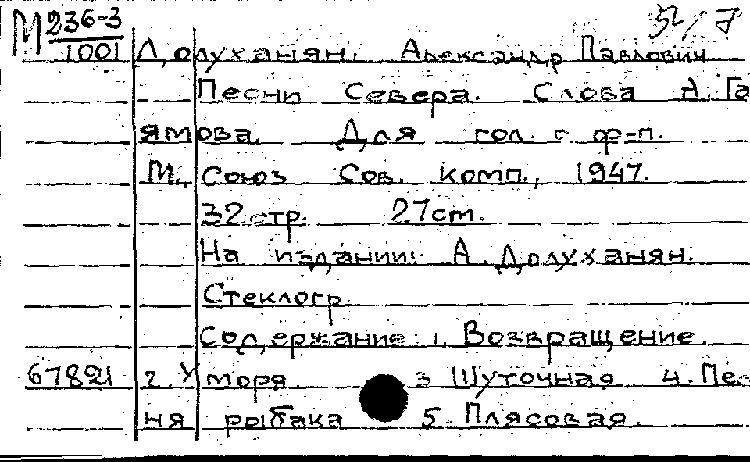 М 236-3 52/7
1001 Долуханян. Александр Павлович
Песни Севера. Слова А. Га
ямова. Для гол. с ф-п.
М., Союз Сов. комп., 1947.
32 стр. 27 cm.
На издании: А. Долуханян.
Стеклогр.
Содержание: 1. Возвращение.
67821 2. У моря 3 Шуточная 4. Пес-
ня рыбака 5. Плясовая.